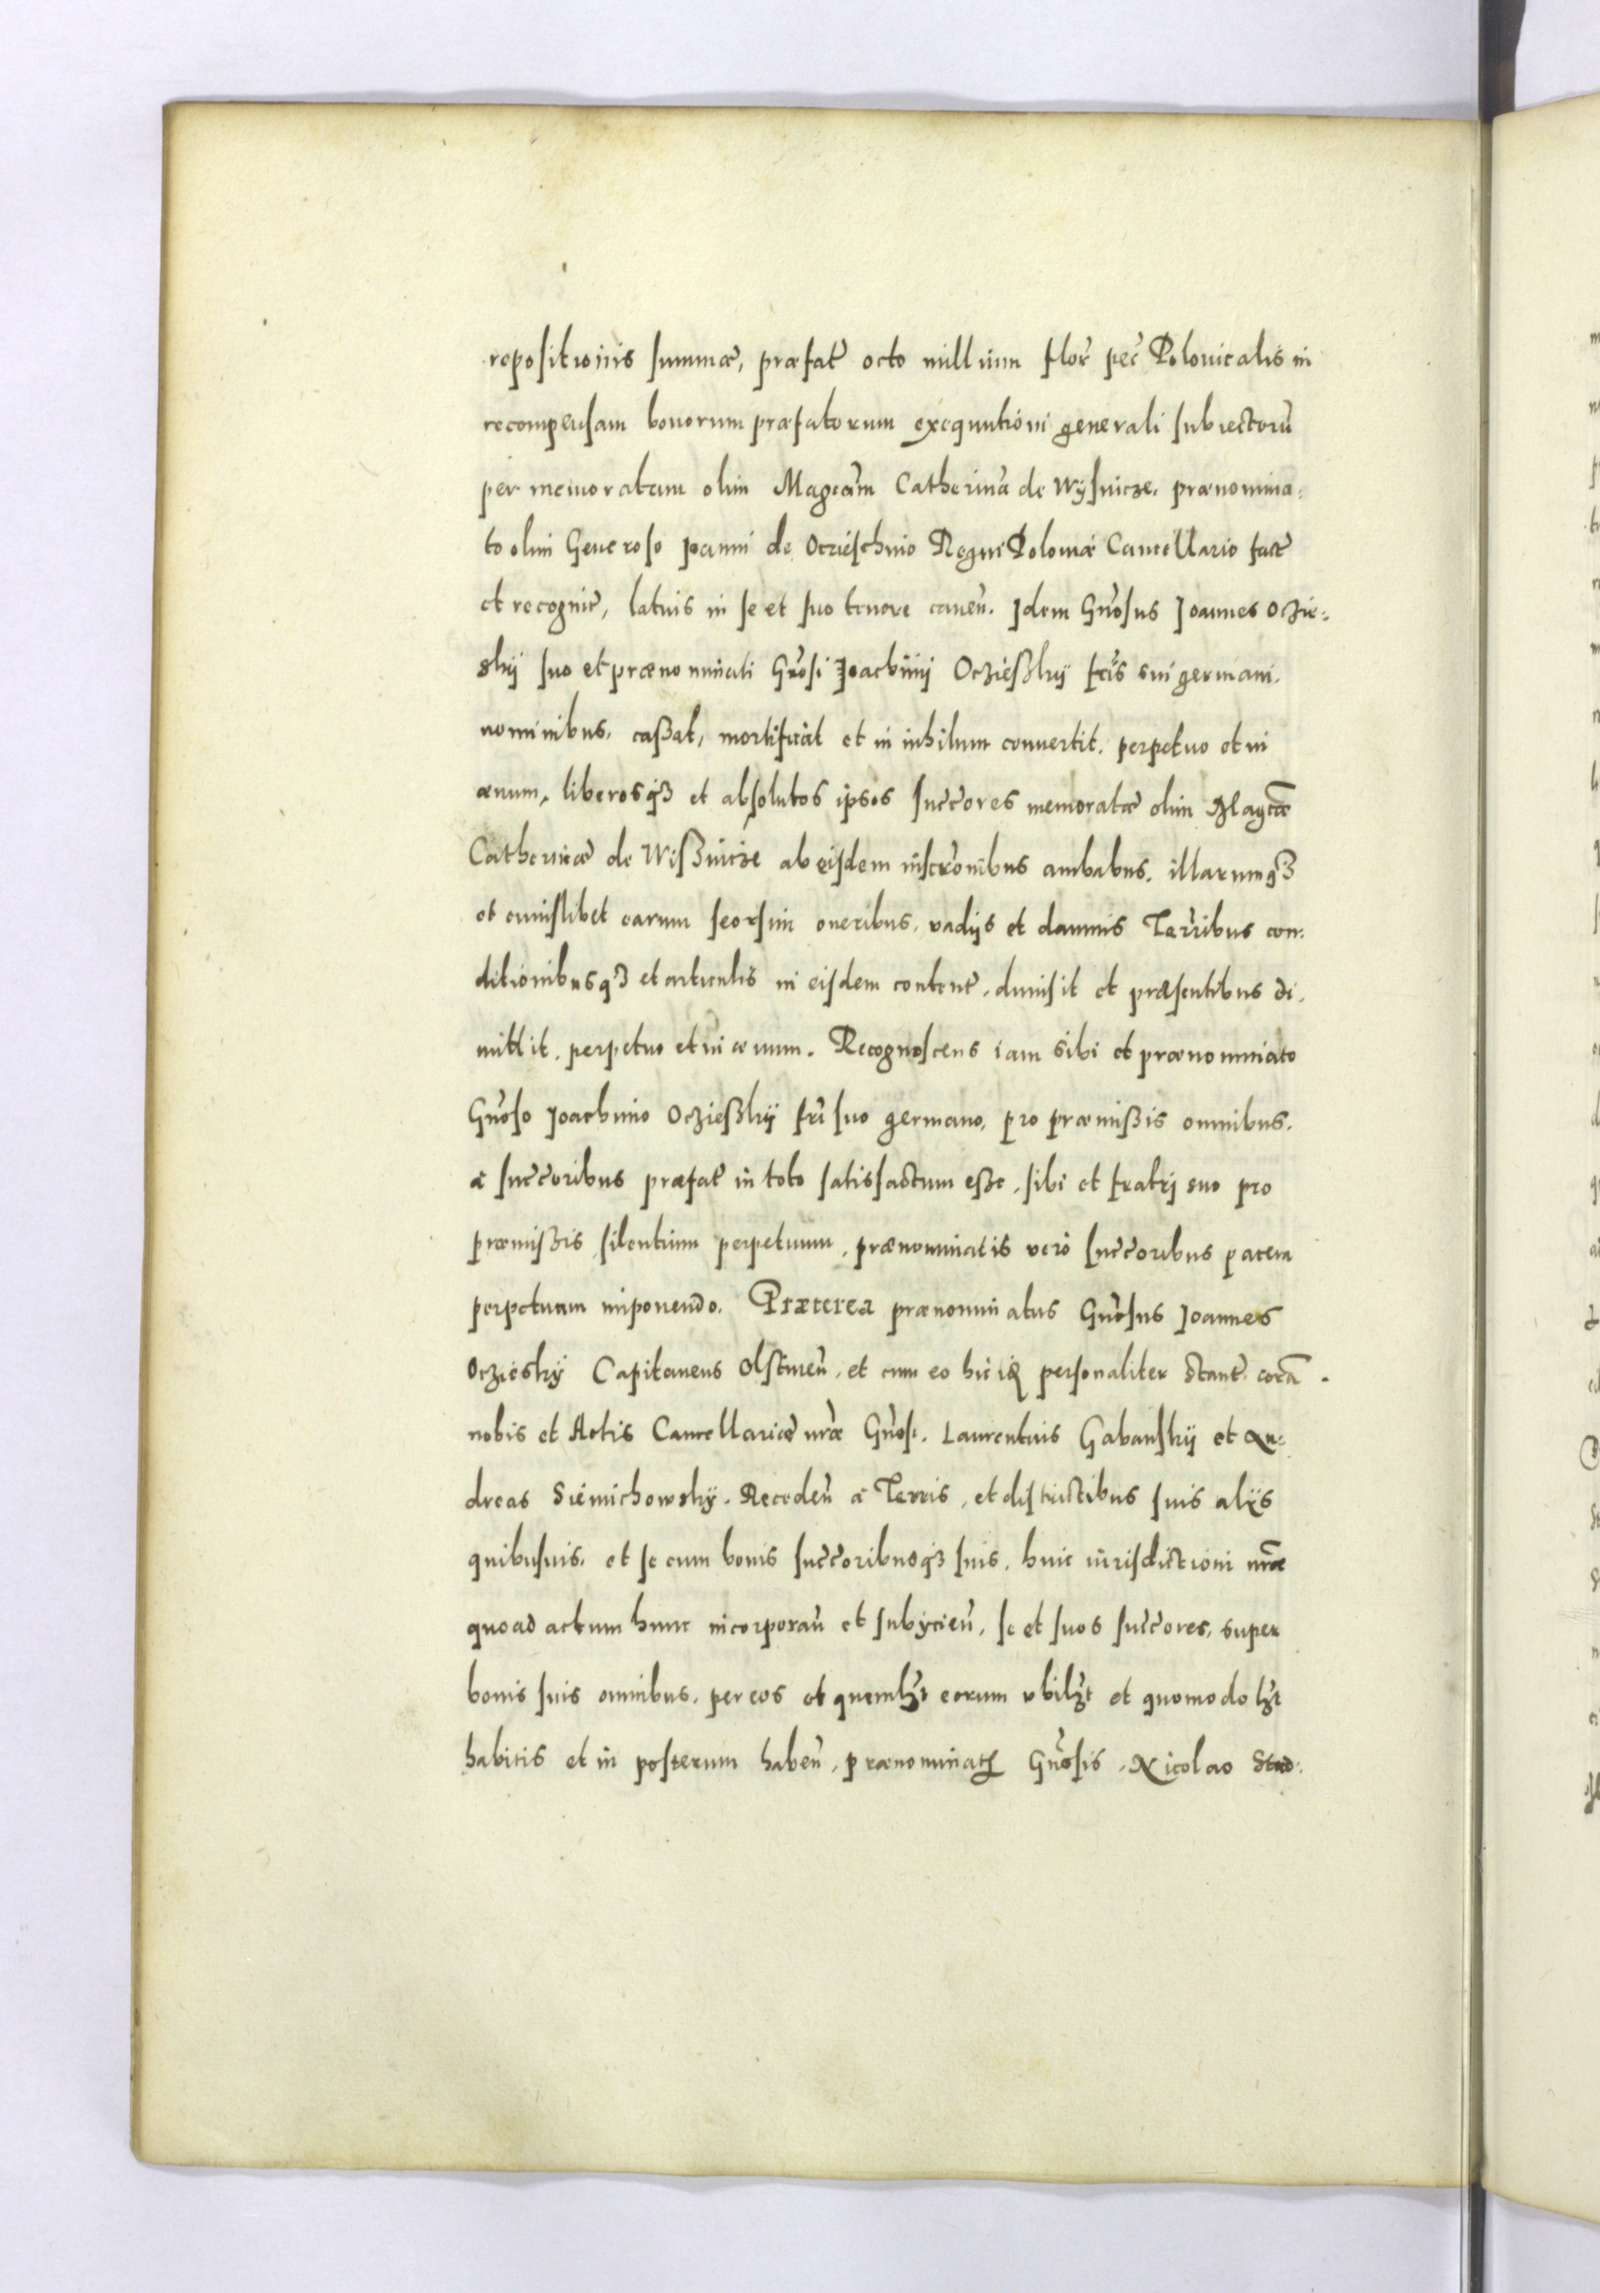 repositionis summæ, præfat̃ octo millium flor̃ pec̃ Polonicalis in
recompensam bonorum præfatorum exequutioni generali subiectorũ
per memoratam olim Magcãm Catherinã de Wÿsnicze, prænomina:
to olim Generoso Joanni de Oczieschnio Regni Poloniæ Cancellario fact̃
et recognit̃, latius in se et suo tenore caneñ. Idem Gñosus Joannes Oczie:
skÿ suo et prænominati Gñosi Joachimi Ocziesskÿ frĩs sui germani,
nominibus, cassat, mortificat et in nihilum conuertit, perpetuo et in
æuum, liberosqȝ et absolutos ipsos succ̃ores memoratæ olim Magcæ̃
Catherinæ de Wissnicze ab eisdem inscr̃onibus ambabus, illarumqȝ
et cuiuslibet earum seorsim oneribus, vadÿs et damnis Terr̃ibus con:
ditionibusqȝ et articulis in eisdem content̃, dimisit et præsentibus di,
mittit, perpetuo et in æuum. Recognoscens iam sibi et prænominato
Gñoso Joachimo Ocziesskÿ fr̃i suo germano, pro præmissis omnibus,
à succ̃oribus præfat̃ in toto satisfactum esse, sibi et fratri suo pro
præmissis silentium perpetuum, prænominatis verò succ̃oribus pacem
perpetuam imponendo. Præterea prænominatus Gñosus Joannes
Oczieskÿ Capitaneus Olstineñ, et cum eo hic itq personaliter stant̃ corã
nobis et Actis Cancellariæ nrǣ Gñosi, Laurentius Gabanskÿ et An:
dreas Siemichowskÿ. Recedeñ à Terris, et districtibus suis alÿs
quibusuis, et se cum bonis succ̃oribusqȝ suis, huic iurisdictioni nræ̃
quoad actum hunc incorporañ et subÿcieñ, se et suos succ̃ores, super
bonis suis omnibus, per eos et quemlȝt eorum vbilȝt et quomodolȝt
habitis et in posterum habeñ, prænominatꝭ Gñosis, Nicolao Stad: